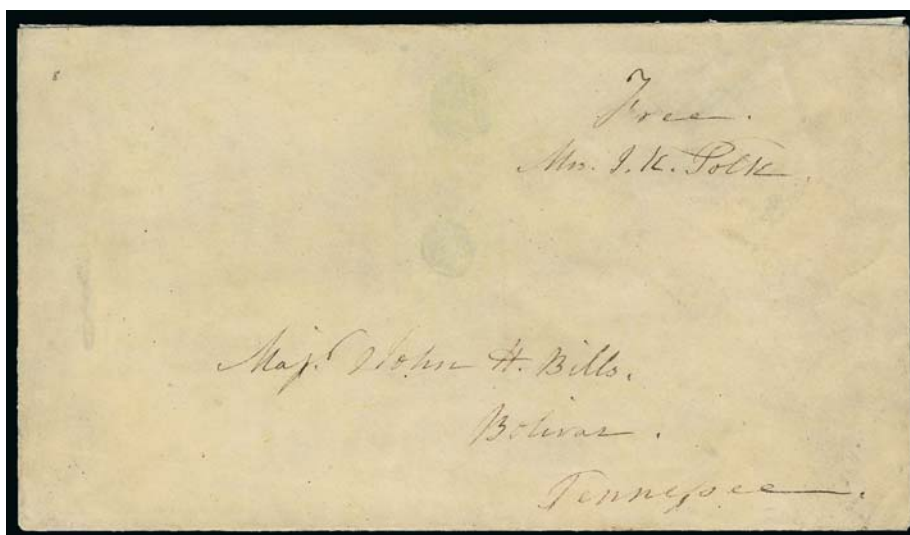 8
Free.
Mrs. J. K. Polk.
Majr. John H. Bills.
Bolivar.
Tennessee.